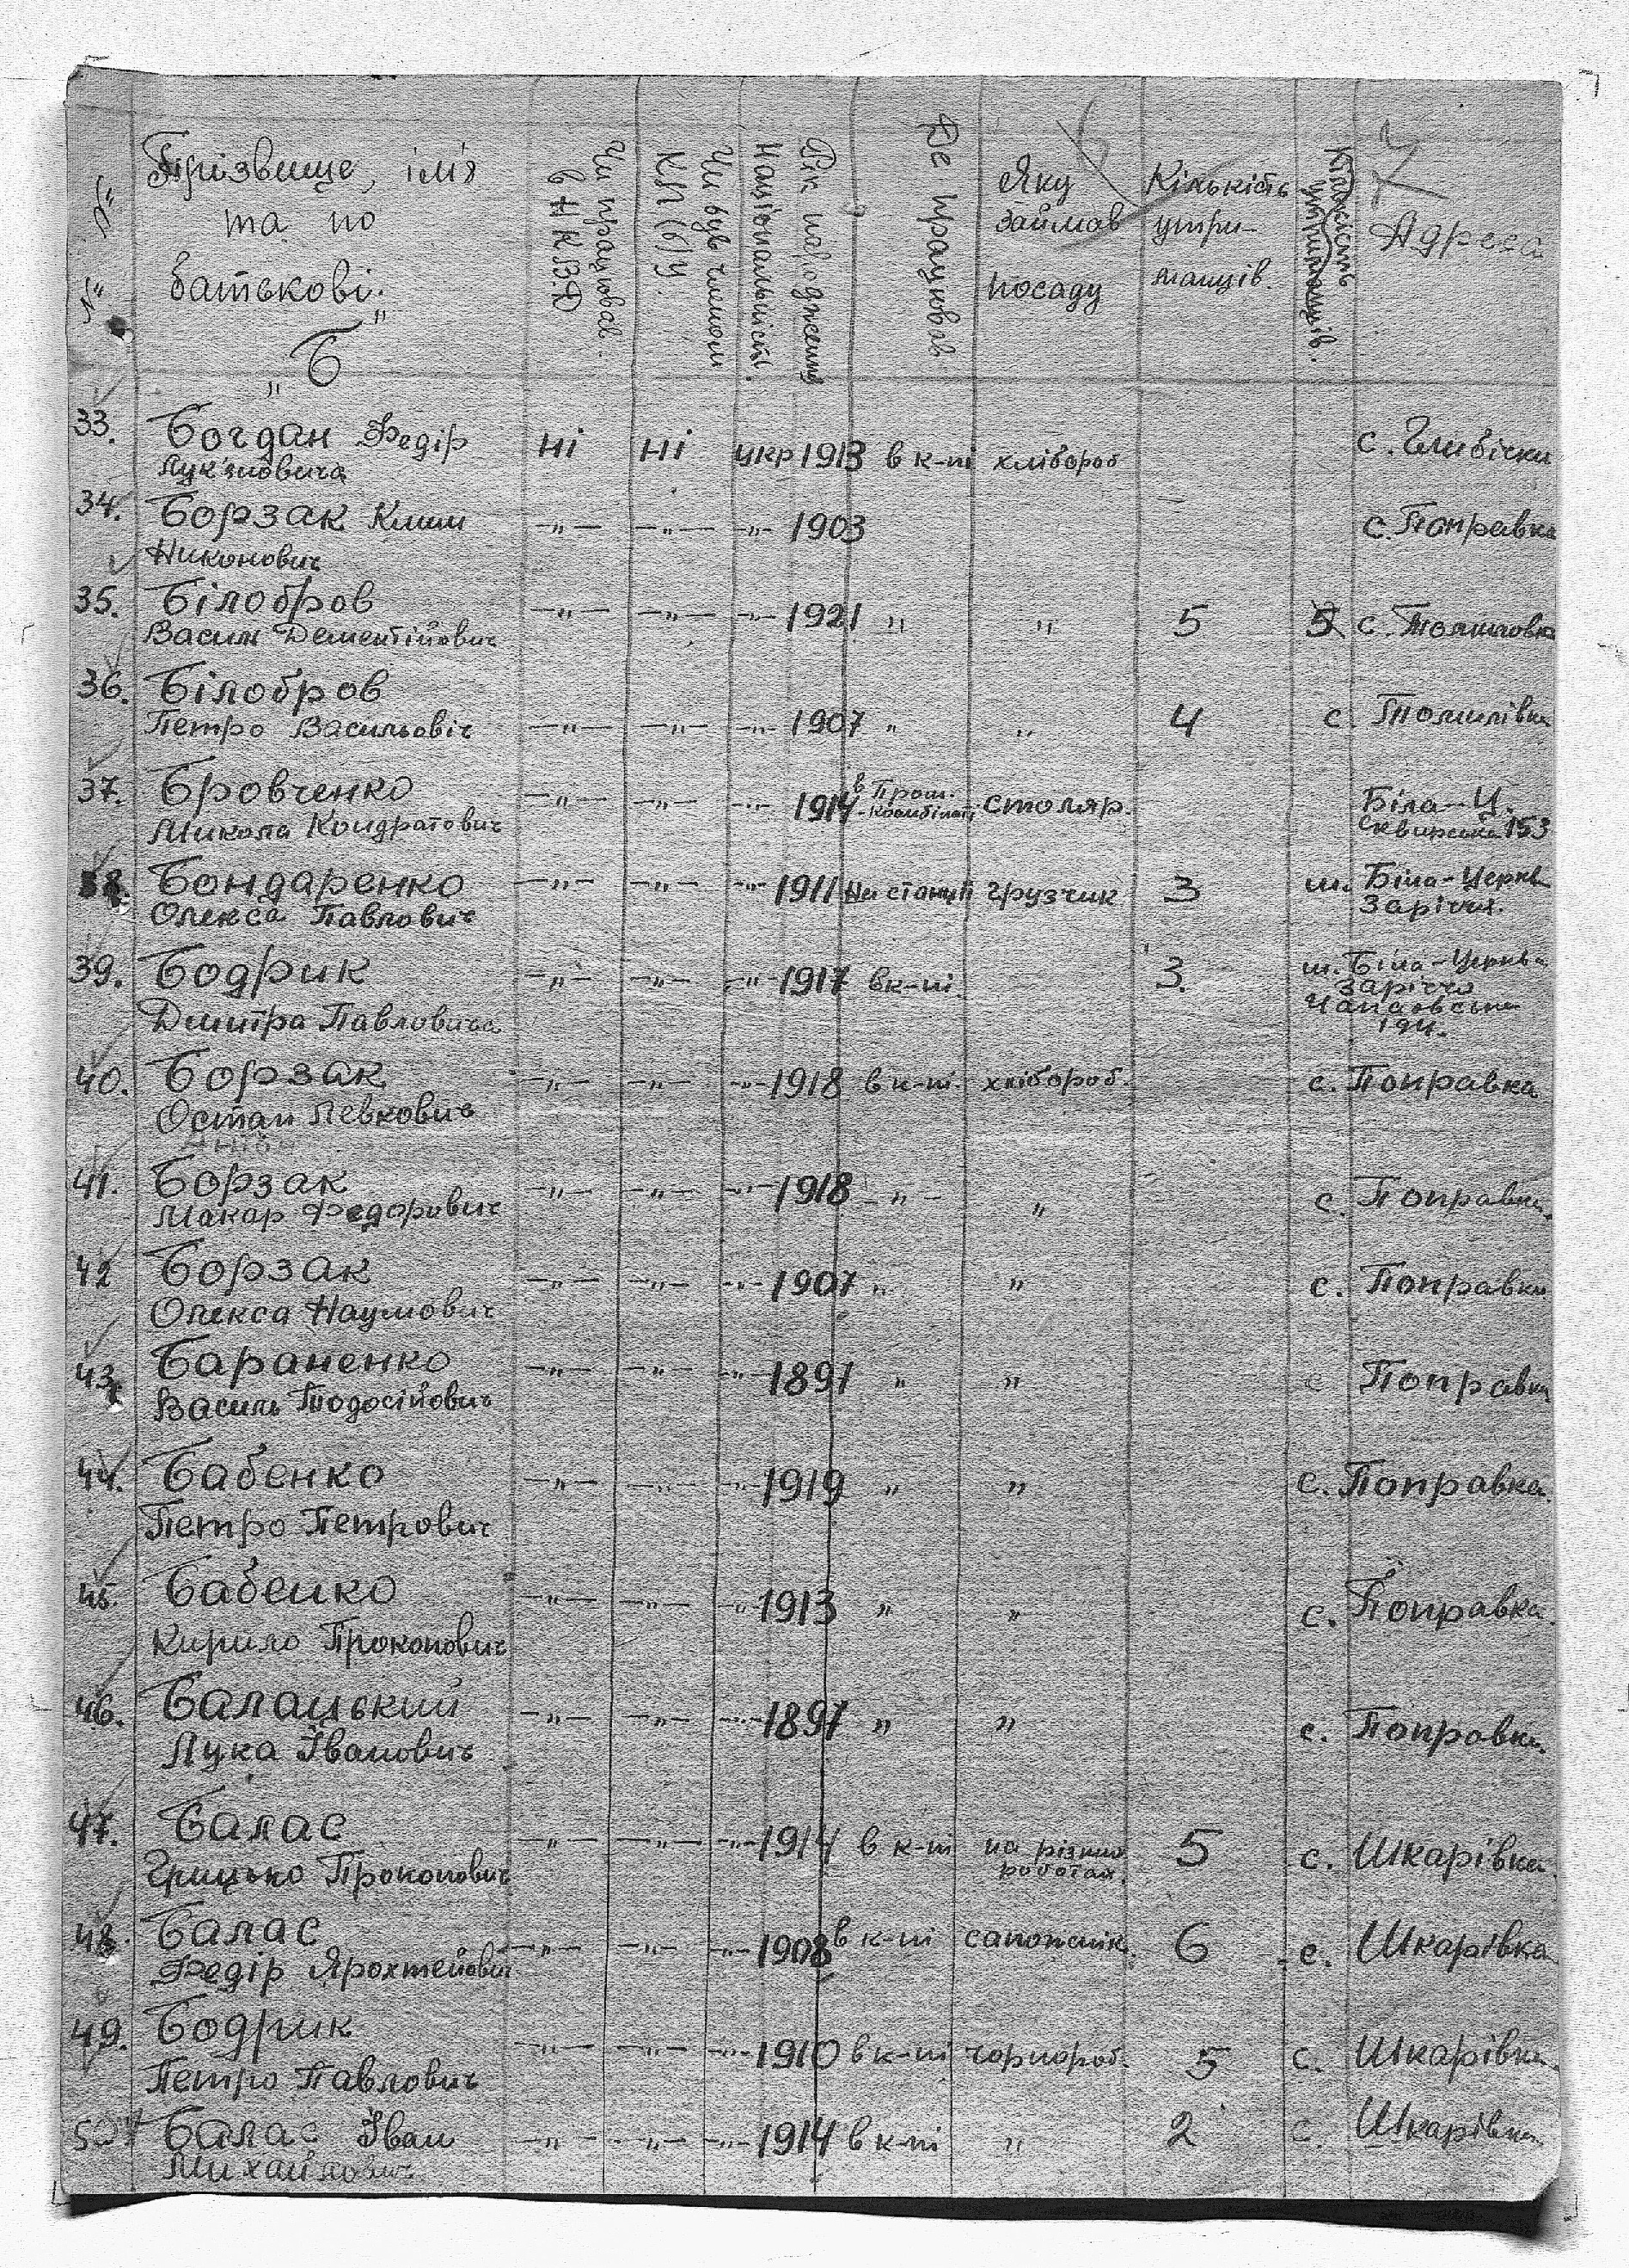 № № Прізвище, ім'я та по батькові. Чи працював в Н К.В.Д Чи був членом КП(б)У. Національність. Рік народження Де працював Яку займав посаду Кількість утри-манців. Кількість утриманців. Адреса
„Б"
33. Богдан Федір ні ні укр 1913 в к-пі хлібороб с. Глибічки
Лук'яновича
34. Борзак Клим —„— —„— —„— 1903 с. Поправка
Никонович
35. Білобров —„— —„— —„— 1921 „ „ 5 5 с. Томиловка
Василь Дементійович
36. Білобров
Петро Васильовіч —„— —„— —„— 1907 „ „ 4 с. Томилівка
37. Бровченко —„— —„— —„— 1914 в Пром. столяр. Біла-Ц.
Микола Кондратович -комбінаті Сквирська 153
38. Бондаренко —„— —„— —„— 1911 На станції грузчик 3 м. Біла-Церкв
Олекса Павлович Заріччя.
39. Бодрик —„— —„— —„— 1917 в к-пі. 3. м. Біла-Церква
Заріччя
Дмитра Павловича
194.
40. Борзак —„— —„— —„— 1918 в к-пі. хлібороб. с. Поправка
Остап Левкович
41. Борзак —„— —„— —„— 1918 —„— „ с. Поправка.
Макар Федорович
42 Борзак —„— —„— —„— 1907 „ „ с. Поправка
Олекса Наумович
43. Бараненко —„— —„— —„— 1897 „ „ с Поправка
Василь Тодосійович
44. Бабенко —„— —„— —„— 1919 „ „ с. Поправка.
Петро Петрович
45. Бабенко —„— —„— —„— 1913 „ „ с. Поправка.
Кирило Прокопович
46. Балацький —„— —„— —„— 1897 „ „ с. Поправка.
Лука Іванович
47. Балас „— —„— —„— 1914 в к-пі на різних 5 с. Шкарівка.
Грицько Прокопович роботах.
48. Балас —„— —„— —„— 1908 в к-пі сапожнік. 6 с. Шкарівка
Федір Ярохтейович
49. Бодрик —„— —„— —„— 1910 в к-пі чорнороб. 5 с. Шкарівка.
Петро Павлович
50 Балас Іван —„— —„— —„— 1914 в к-пі „ 2 с. Шкарівка
Михайлович